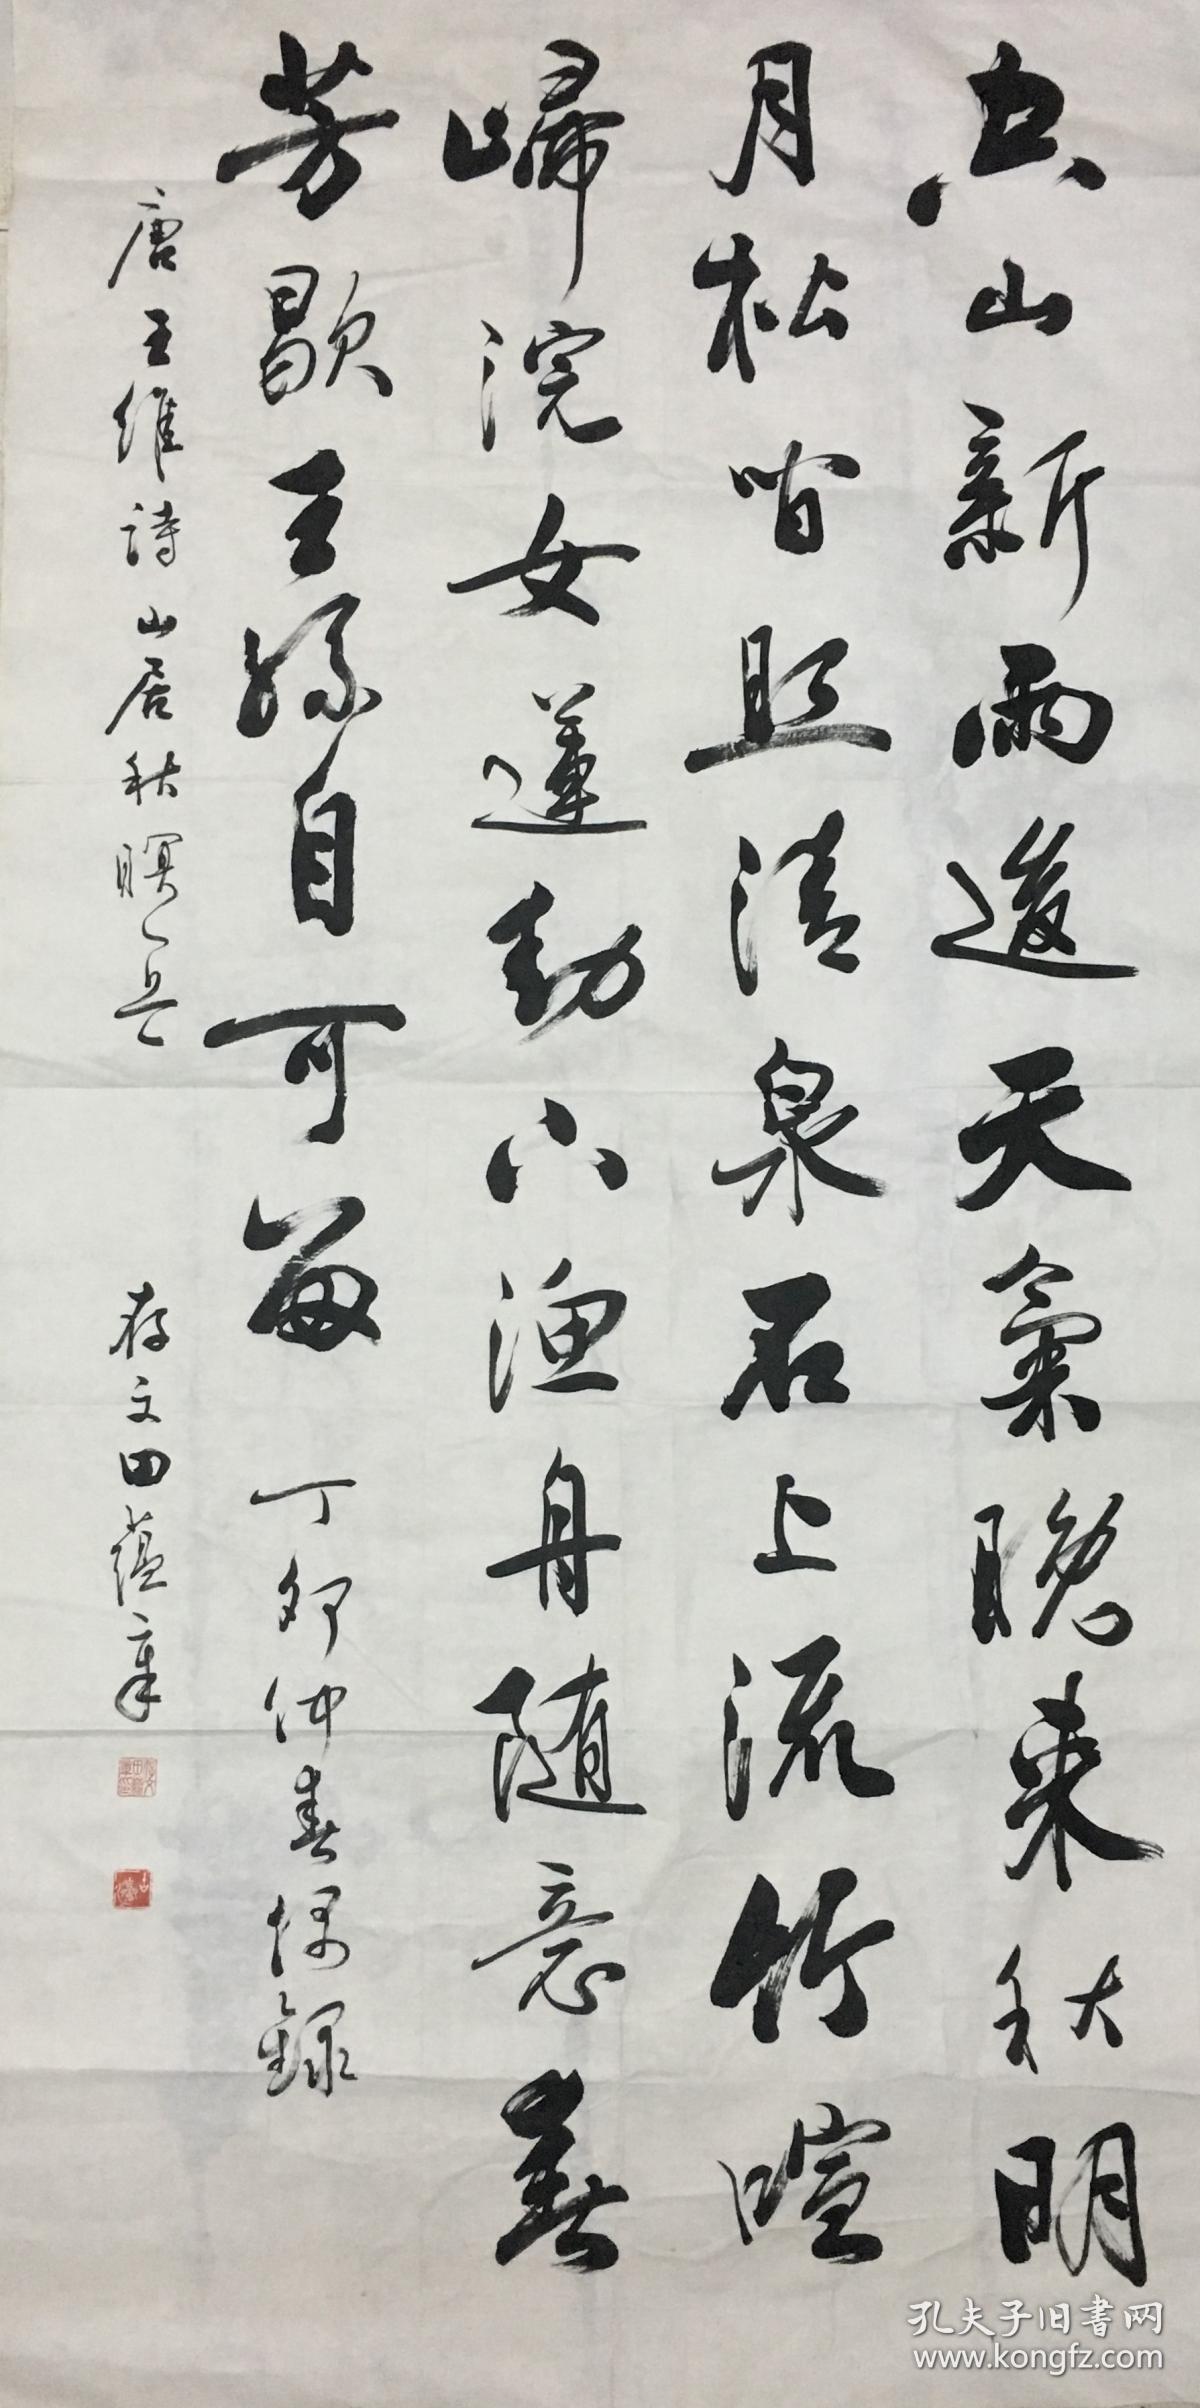 空山新雨後天氣晚来秋明
月松間照清泉石上流竹喧
歸浣女蓮動下漁舟随意春
芳歇王孫自可留 丁卯仲春偶錄
唐王維詩山居秋暝一兵 存文田蕴章
孔夫子旧書网
www.kongfz.com